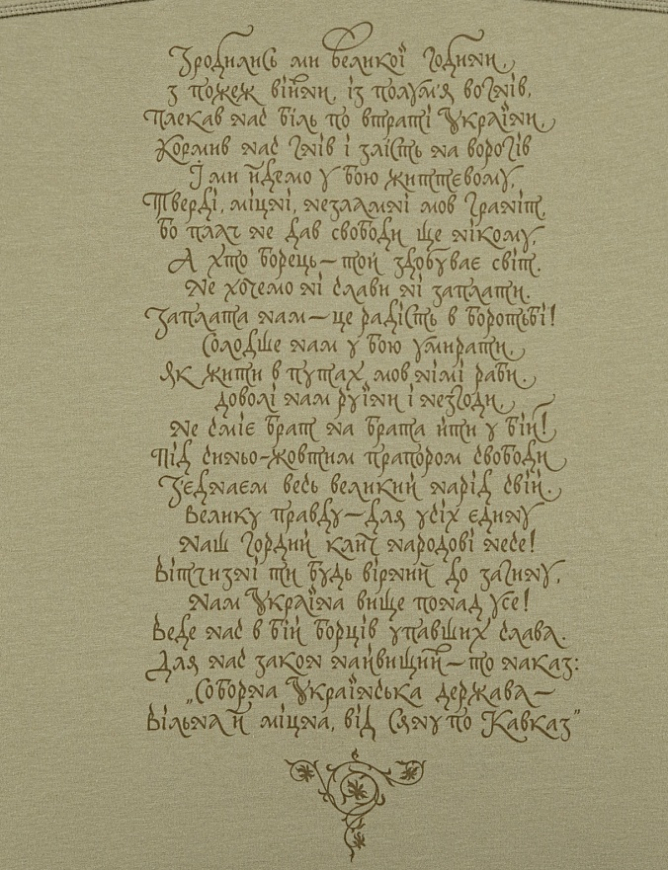 Зродились ми великої години,
з пожеж війни, із полум'я вогнів,
Плекав нас біль по втраті України,
Кормив нас гнів і злість на ворогів
І ми йдемо у бою життєвому,
Тверді, міцні, незламні мов граніт,
бо плач не дав свободи ще нікому,
А хто борець — той здобуває світ.
Не хочемо ні слави ні заплати.
Заплата нам — це радість в боротьбі!
Солодше нам у бою умирати,
як жити в путах, мов німі раби.
доволі нам руїни і незгоди,
Не сміє брат на брата йти у бій!
Під синьо-жовтим прапором свободи
З'єднаєм весь великий нарід свій.
Велику правду — для усіх єдину
Наш гордий клич народові несе!
Вітчизні ти будь вірний до загину,
Нам Україна вище понад усе!
Веде нас в бій борців упавших слава.
Для нас закон найвищий — то наказ:
„Соборна Українська держава —
Вільна й міцна, від Сяну по Кавказ"